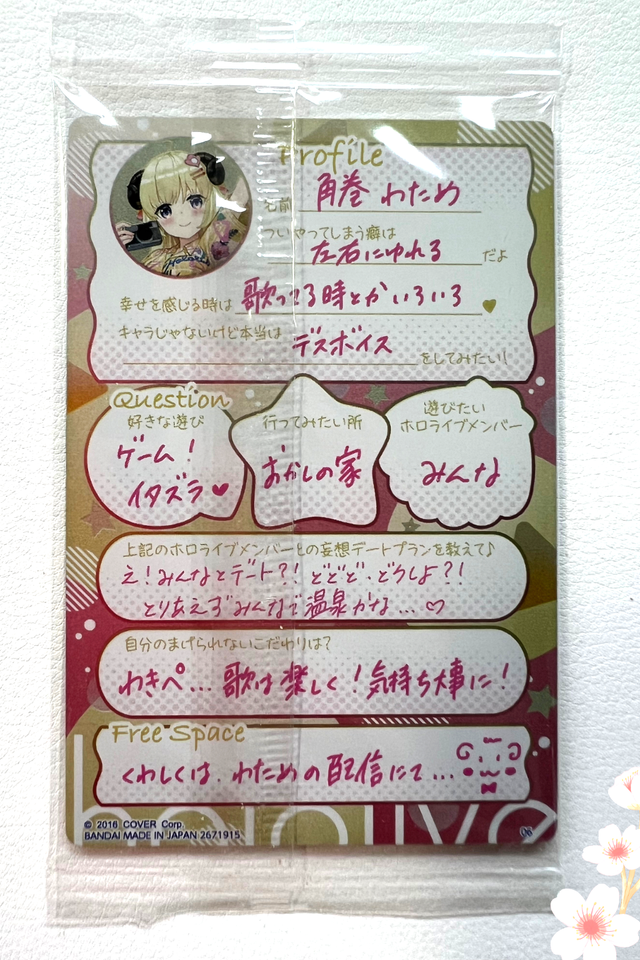 Profile
名前 角巻 わため
ついやってしまう癖は
左右にゆれる だよ
幸せを感じる時は 歌ってる時とかいろいろ
キャラじゃないけど本当は
デスボイス をしてみたい!
Question
好きな遊び
ゲーム!
イタズラ♥
行ってみたい所
おかしの家
遊びたい
ホロライブメンバー
みんな
上記のホロライブメンバーとの妄想デートプランを教えて♪
え!みんなとデート?!どどど・どうしよ?!
とりあえずみんなで温泉かな…♡
自分のまげられないこだわりは?
わきペ…歌は楽しく!気持ち大事に!
Free Space
くわしくは、わための配信にて…
hololive
© 2016 COVER Corp.
BANDAI MADE IN JAPAN 2671915
06